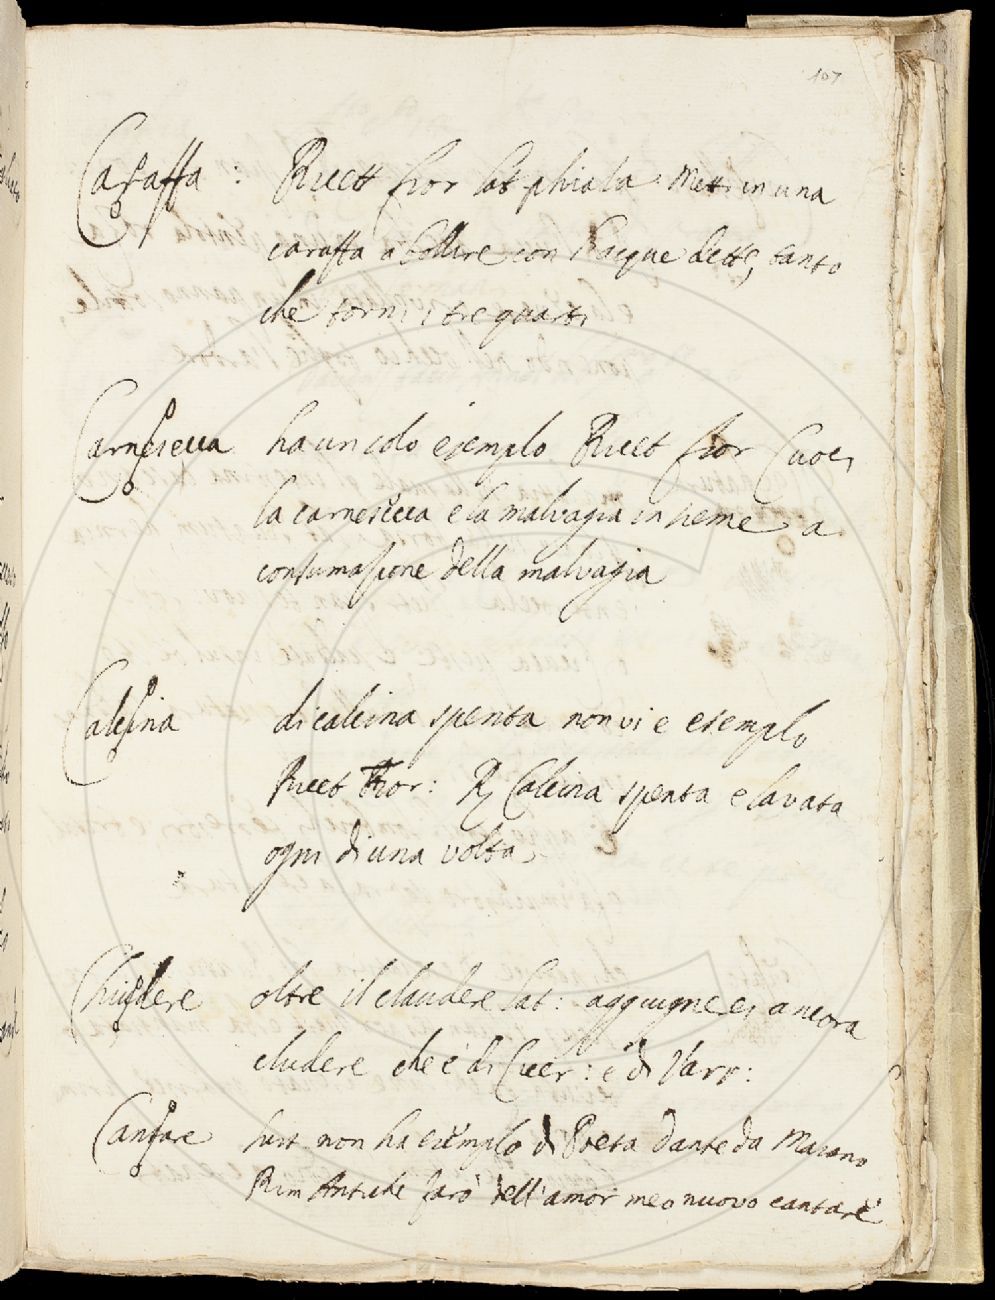 107
Caraffa : Ricett fior lat phiala. Metti in una
caraffa a bollire con l'acque dette, tanto
che torni i tre quarti
Carnesecca ha un solo esemplo Ricet fior Cuoci
la carnesecca e la malvagia insieme a
consumazione della malvagia
Calcina di calcina spenta non vi e esemplo
Ricet Fior: R Calcina spenta e lavata
ogni dì una volta.
Chiudere oltre il claudere lat: aggiugnerei ancora
cludere che è di Cicer: e di Varr:
Cantare sust non ha esemplo di Poeta Dante da Maiano
Rim Antiche farò dell'amor meo nuovo cantare